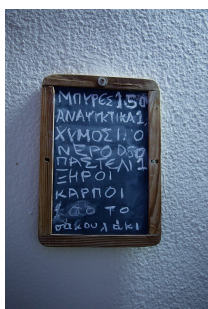 ΜΠΥΡΕΣ 1.50
ΑΝΑΨΥΚΤΙΚΑ 1.
ΧΥΜΟΣ 1.0
ΝΕΡΟ 0.50
ΠΑΣΤΕΛΙ 1
ΞΗΡΟΙ
ΚΑΡΠΟΙ
ΤΟ
σακουλάκι